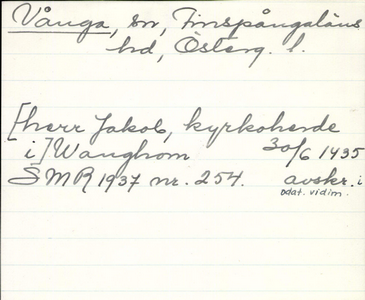 Vånga, sn, Finspångaläns
hd, Österg. l.
[herr Jakob, kyrkoherde
i] Wanghom 30/6 1435
SMR 1937 nr. 254. avskr. i
odat. vidim.